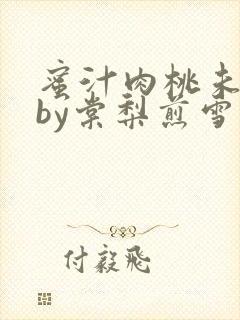 蜜汁肉桃未
by棠梨煎雪
付毅飛